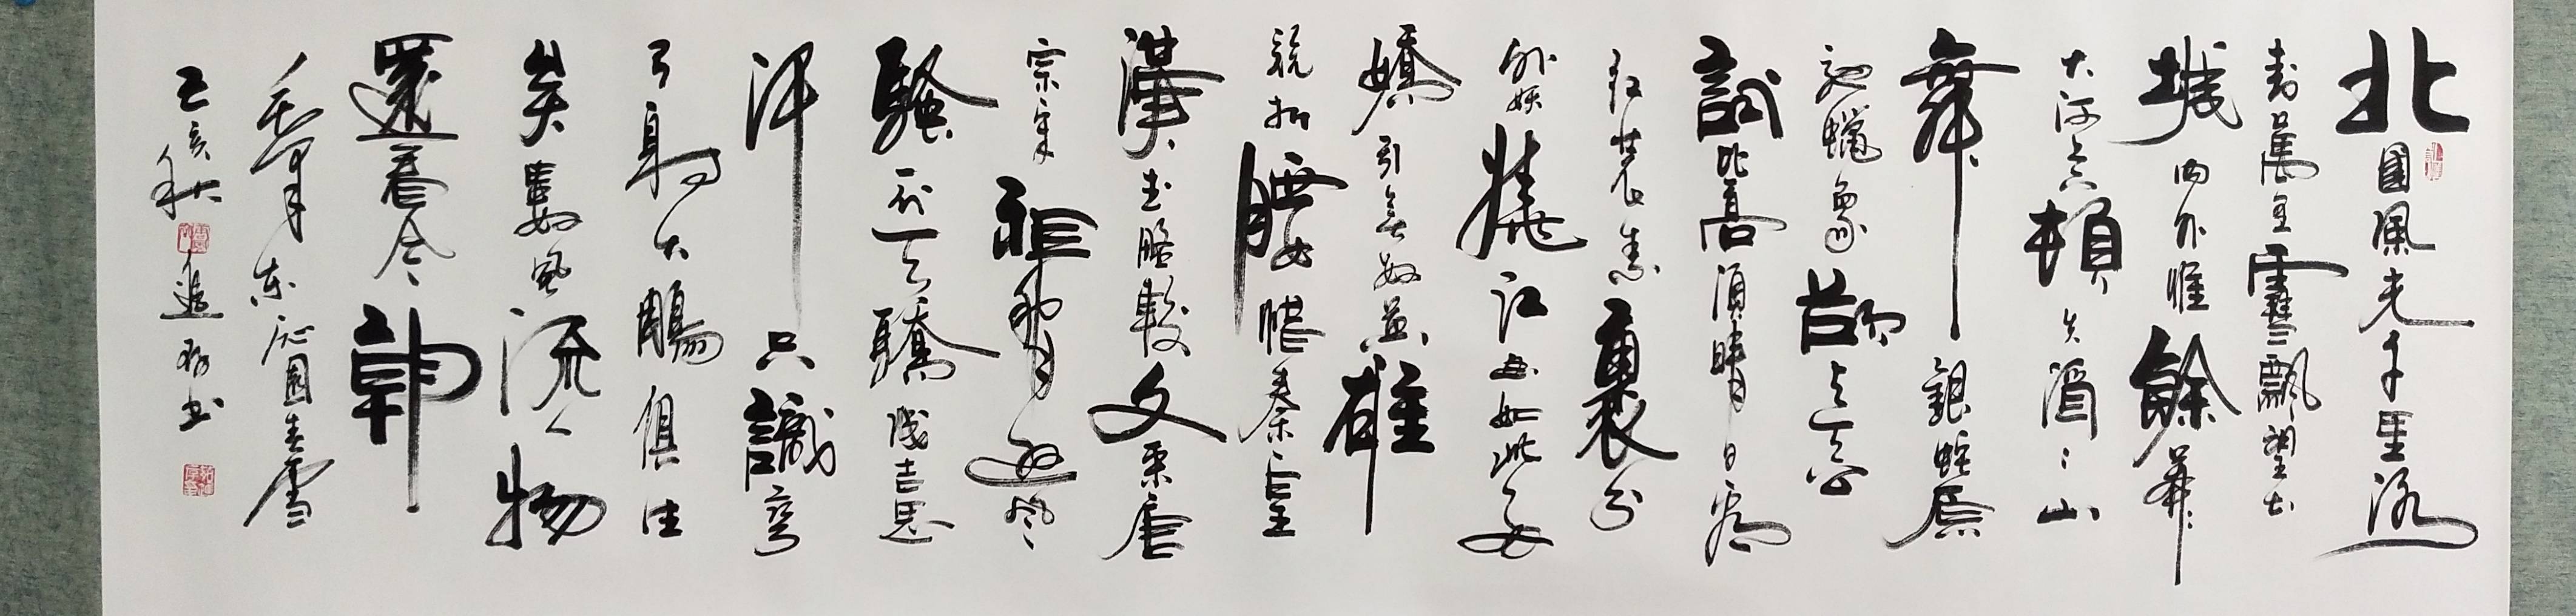 北國風光千里冰
封萬里雪飄望长
城内外惟餘莽〻
大河上下頓失滔〻山
舞銀蛇原
馳蠟象欲与天公
試比高須晴日看
红装素裹分
外妖嬈江山如此多
嬌引無數英雄
競折腰惜秦皇
漢武略輸文采唐
宗宋祖稍遜風
騷一代天驕成吉思
汗只識彎
弓射大鵰俱往
矣數風流人物
還看今朝
毛澤東沁園春雪
己亥秋 书